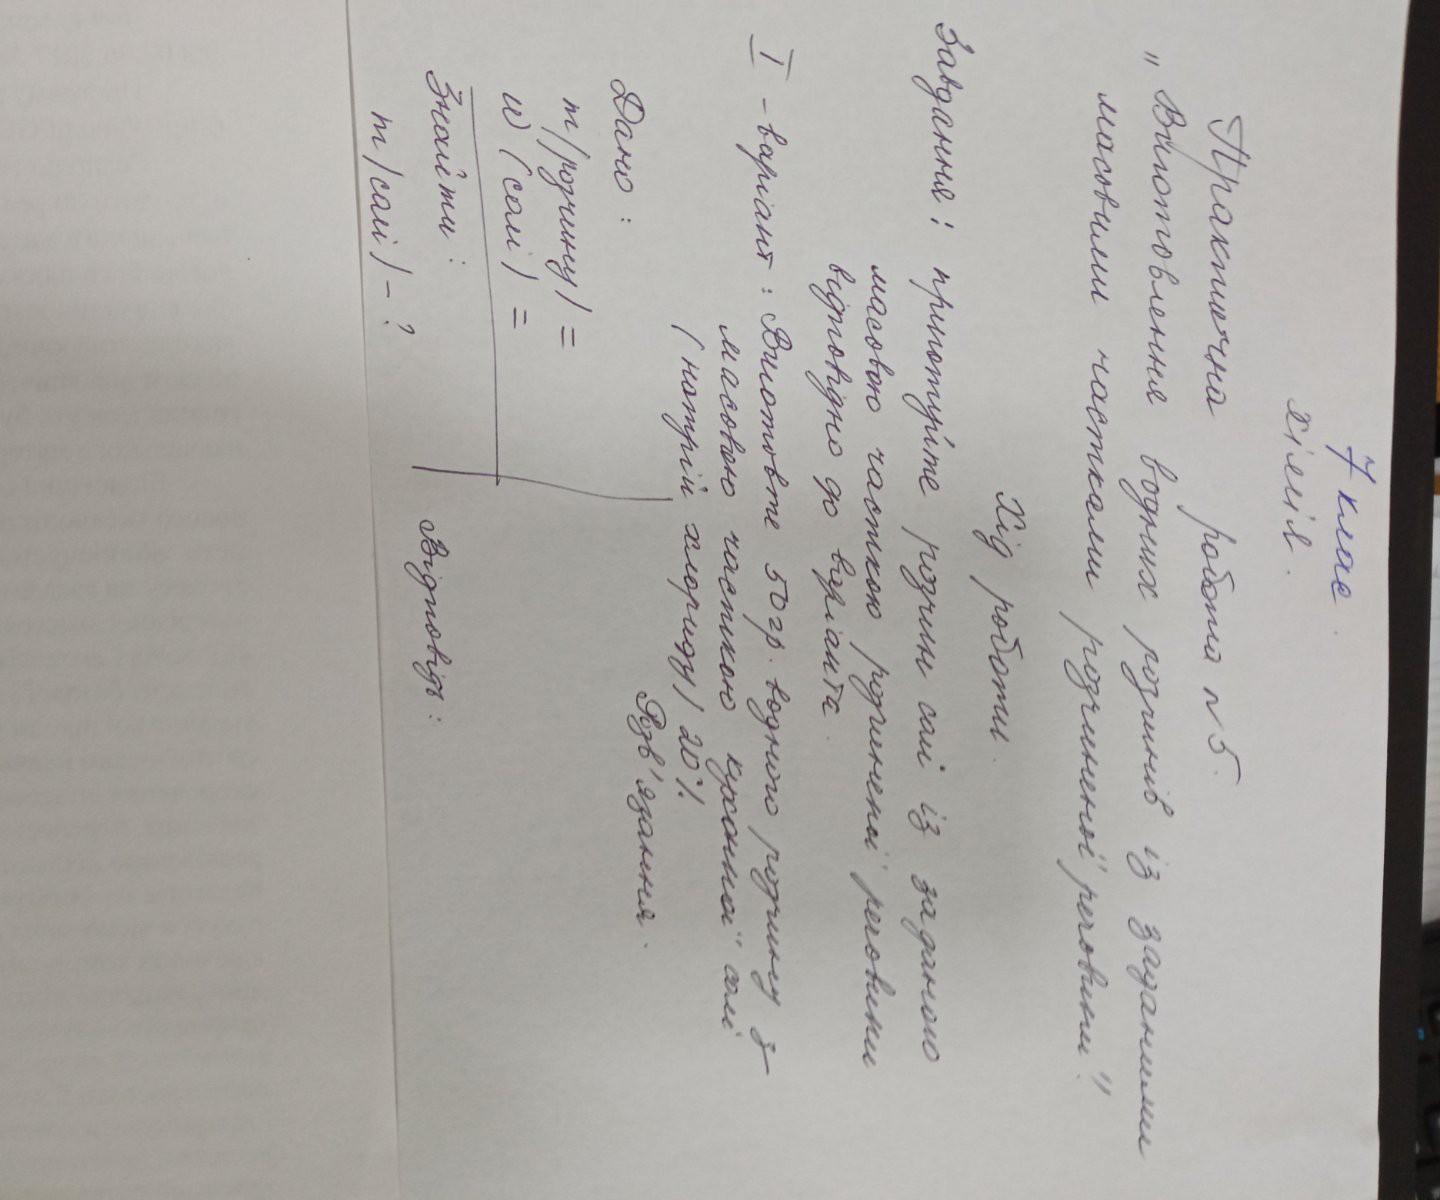 7 клас.
хімія.
Практична робота n 5.
„Виготовлення водних розчинів із заданими
масовими частками розчиненої речовини."
Хід роботи.
Завдання: приготуйте розчин солі із заданою
масовою часткою розчиненої речовини
відповідно до варіанта.
I - варіант: Виготовте 50 гр. водного розчину з
масовою часткою кухонної солі
(натрій хлориду) 20%.
Дано:
Розв'язання.
m/розчину/ =
w (солі) =
Знайти:
m/солі/ - ?
Відповідь: